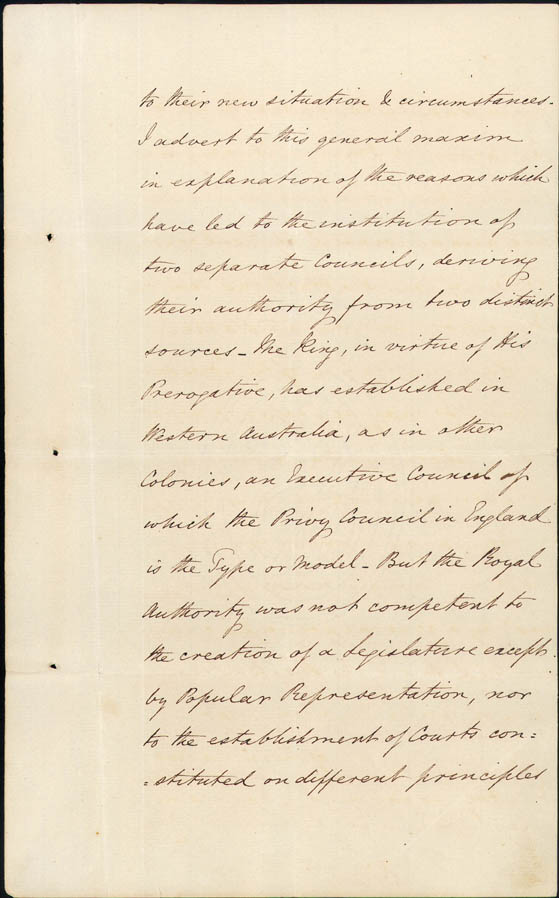 to their new situation & circumstances.
I advert to this general maxim
in explanation of the reasons which
have led to the institution of
two separate Councils, deriving
their authority from two distinct
sources - The King, in virtue of His
Prerogative, has established in
Western Australia, as in other
Colonies, an Executive Council of
which the Privy Council in England
is the Type or Model - But the Royal
Authority was not competent to
the creation of a Legislature except
by Popular Representation, nor
to the establishment of Courts con=
=stituted on different principles